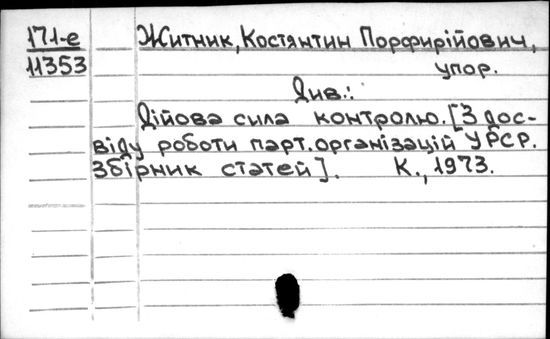 171-е Житник, Костянтин Порфирійович,
11353 упор.
Див.:
Дійова сила контролю. [З дос-
віду роботи парт. організацій УРСР.
Збірник статей]. К., 1973.